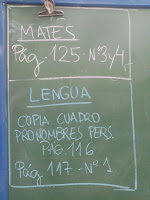 MATES
Pág. 125 Nº3y4
LENGUA
COPIA CUADRO
PRONOMBRES PERS.
PÁG. 116
Pág. 117 - Nº 1